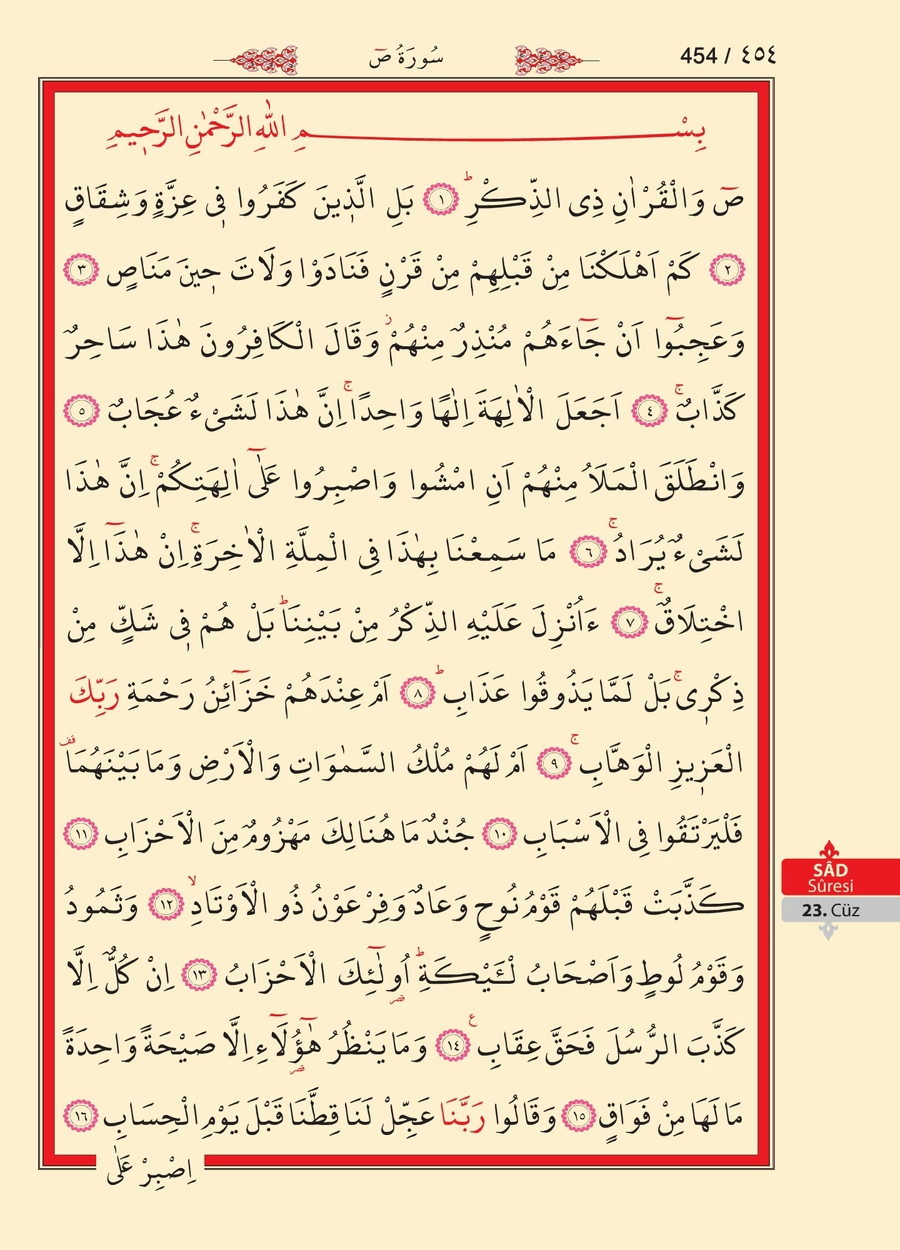 454 / ٤٥٤
سُورَةُ صٓ
بِسْمِ اللّٰهِ الرَّحْمٰنِ الرَّحٖيمِ
صٓ وَالْقُرْاٰنِ ذِى الذِّكْرِؕ ﴿١﴾ بَلِ الَّذٖينَ كَفَرُوا فٖى عِزَّةٍ وَشِقَاقٍ
﴿٢﴾ كَمْ اَهْلَكْنَا مِنْ قَبْلِهِمْ مِنْ قَرْنٍ فَنَادَوْا وَلَاتَ حٖينَ مَنَاصٍ ﴿٣﴾
وَعَجِبُٓوا اَنْ جَٓاءَهُمْ مُنْذِرٌ مِنْهُمْؗ وَقَالَ الْكَافِرُونَ هٰذَا سَاحِرٌ
كَذَّابٌۚ ﴿٤﴾ اَجَعَلَ الْاٰلِهَةَ اِلٰهًا وَاحِدًاۚ اِنَّ هٰذَا لَشَىْءٌ عُجَابٌ ﴿٥﴾
وَانْطَلَقَ الْمَلَاُ مِنْهُمْ اَنِ امْشُوا وَاصْبِرُوا عَلٰٓى اٰلِهَتِكُمْۚ اِنَّ هٰذَا
لَشَىْءٌ يُرَادُۚ ﴿٦﴾ مَا سَمِعْنَا بِهٰذَا فِى الْمِلَّةِ الْاٰخِرَةِۚ اِنْ هٰذَٓا اِلَّا
اخْتِلَاقٌۚ ﴿٧﴾ ءَاُنْزِلَ عَلَيْهِ الذِّكْرُ مِنْ بَيْنِنَاؕ بَلْ هُمْ فٖى شَكٍّ مِنْ
ذِكْرٖىۚ بَلْ لَمَّا يَذُوقُوا عَذَابِؕ ﴿٨﴾ اَمْ عِنْدَهُمْ خَزَٓائِنُ رَحْمَةِ رَبِّكَ
الْعَزٖيزِ الْوَهَّابِۚ ﴿٩﴾ اَمْ لَهُمْ مُلْكُ السَّمٰوَاتِ وَالْاَرْضِ وَمَا بَيْنَهُمَا قف
فَلْيَرْتَقُوا فِى الْاَسْبَابِ ﴿١٠﴾ جُنْدٌ مَا هُنَالِكَ مَهْزُومٌ مِنَ الْاَحْزَابِ ﴿١١﴾
كَذَّبَتْ قَبْلَهُمْ قَوْمُ نُوحٍ وَعَادٌ وَفِرْعَوْنُ ذُو الْاَوْتَادِۙ ﴿١٢﴾ وَثَمُودُ
وَقَوْمُ لُوطٍ وَاَصْحَابُ لْـَٔيْكَةِؕ اُو۬لٰٓئِكَ الْاَحْزَابُ ﴿١٣﴾ اِنْ كُلٌّ اِلَّا
كَذَّبَ الرُّسُلَ فَحَقَّ عِقَابِ ع ﴿١٤﴾ وَمَا يَنْظُرُ هٰٓؤُ۬لَٓاءِ اِلَّا صَيْحَةً وَاحِدَةً
مَا لَهَا مِنْ فَوَاقٍ ﴿١٥﴾ وَقَالُوا رَبَّنَا عَجِّلْ لَنَا قِطَّنَا قَبْلَ يَوْمِ الْحِسَابِ ﴿١٦﴾
اِصْبِرْ عَلٰى
SÂD
Sûresi
23. Cüz